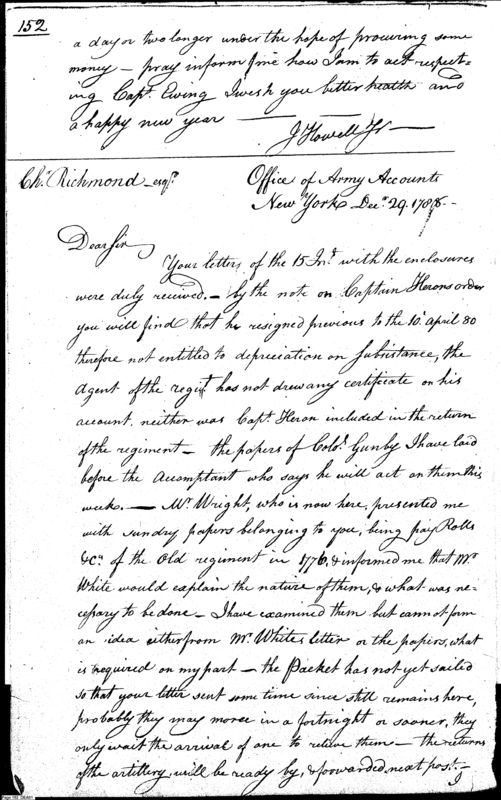 152
a day or two longer under the hope of procuring some
money — pray inform me how I am to act respect-
ing Capt. Ewing I wish you better health and
a happy new year —
J Howell Jr —
Chr. Richmond esqr.
Office of Army Accounts
New York Decr. 29. 1788 —
Dear Sir
Your letters of the 15 Int. with the enclosures
were duly received. — by the note on Captain Herons order
you will find that he resigned previous to the 10. April 80
therefore not entitled to depreciation on Subsistance, the
Agent of the regit. has not drew any certificate on his
account, neither was Capt. Heron included in the return
of the regiment — the papers of Colol. Gunby I have laid
before the Accomptant who says he will act on them this
week. — Mr. Wright, who is now here, presented me
with sundry papers belonging to you, being pay Rolls
&ca. of the Old regiment in 1776, & informed me that Mr.
White would explain the nature of them, & what was ne-
cessary to be done — I have examined them but cannot form
an idea either from Mr. Whites letter or the papers, what
is required on my part — the Packet has not yet sailed
so that your letter sent some time since still remains here,
probably they may move in a fortnight or sooner, they
only wait the arrival of one to relieve them — The returns
of the artillery will be ready by, & forwarded next post. —